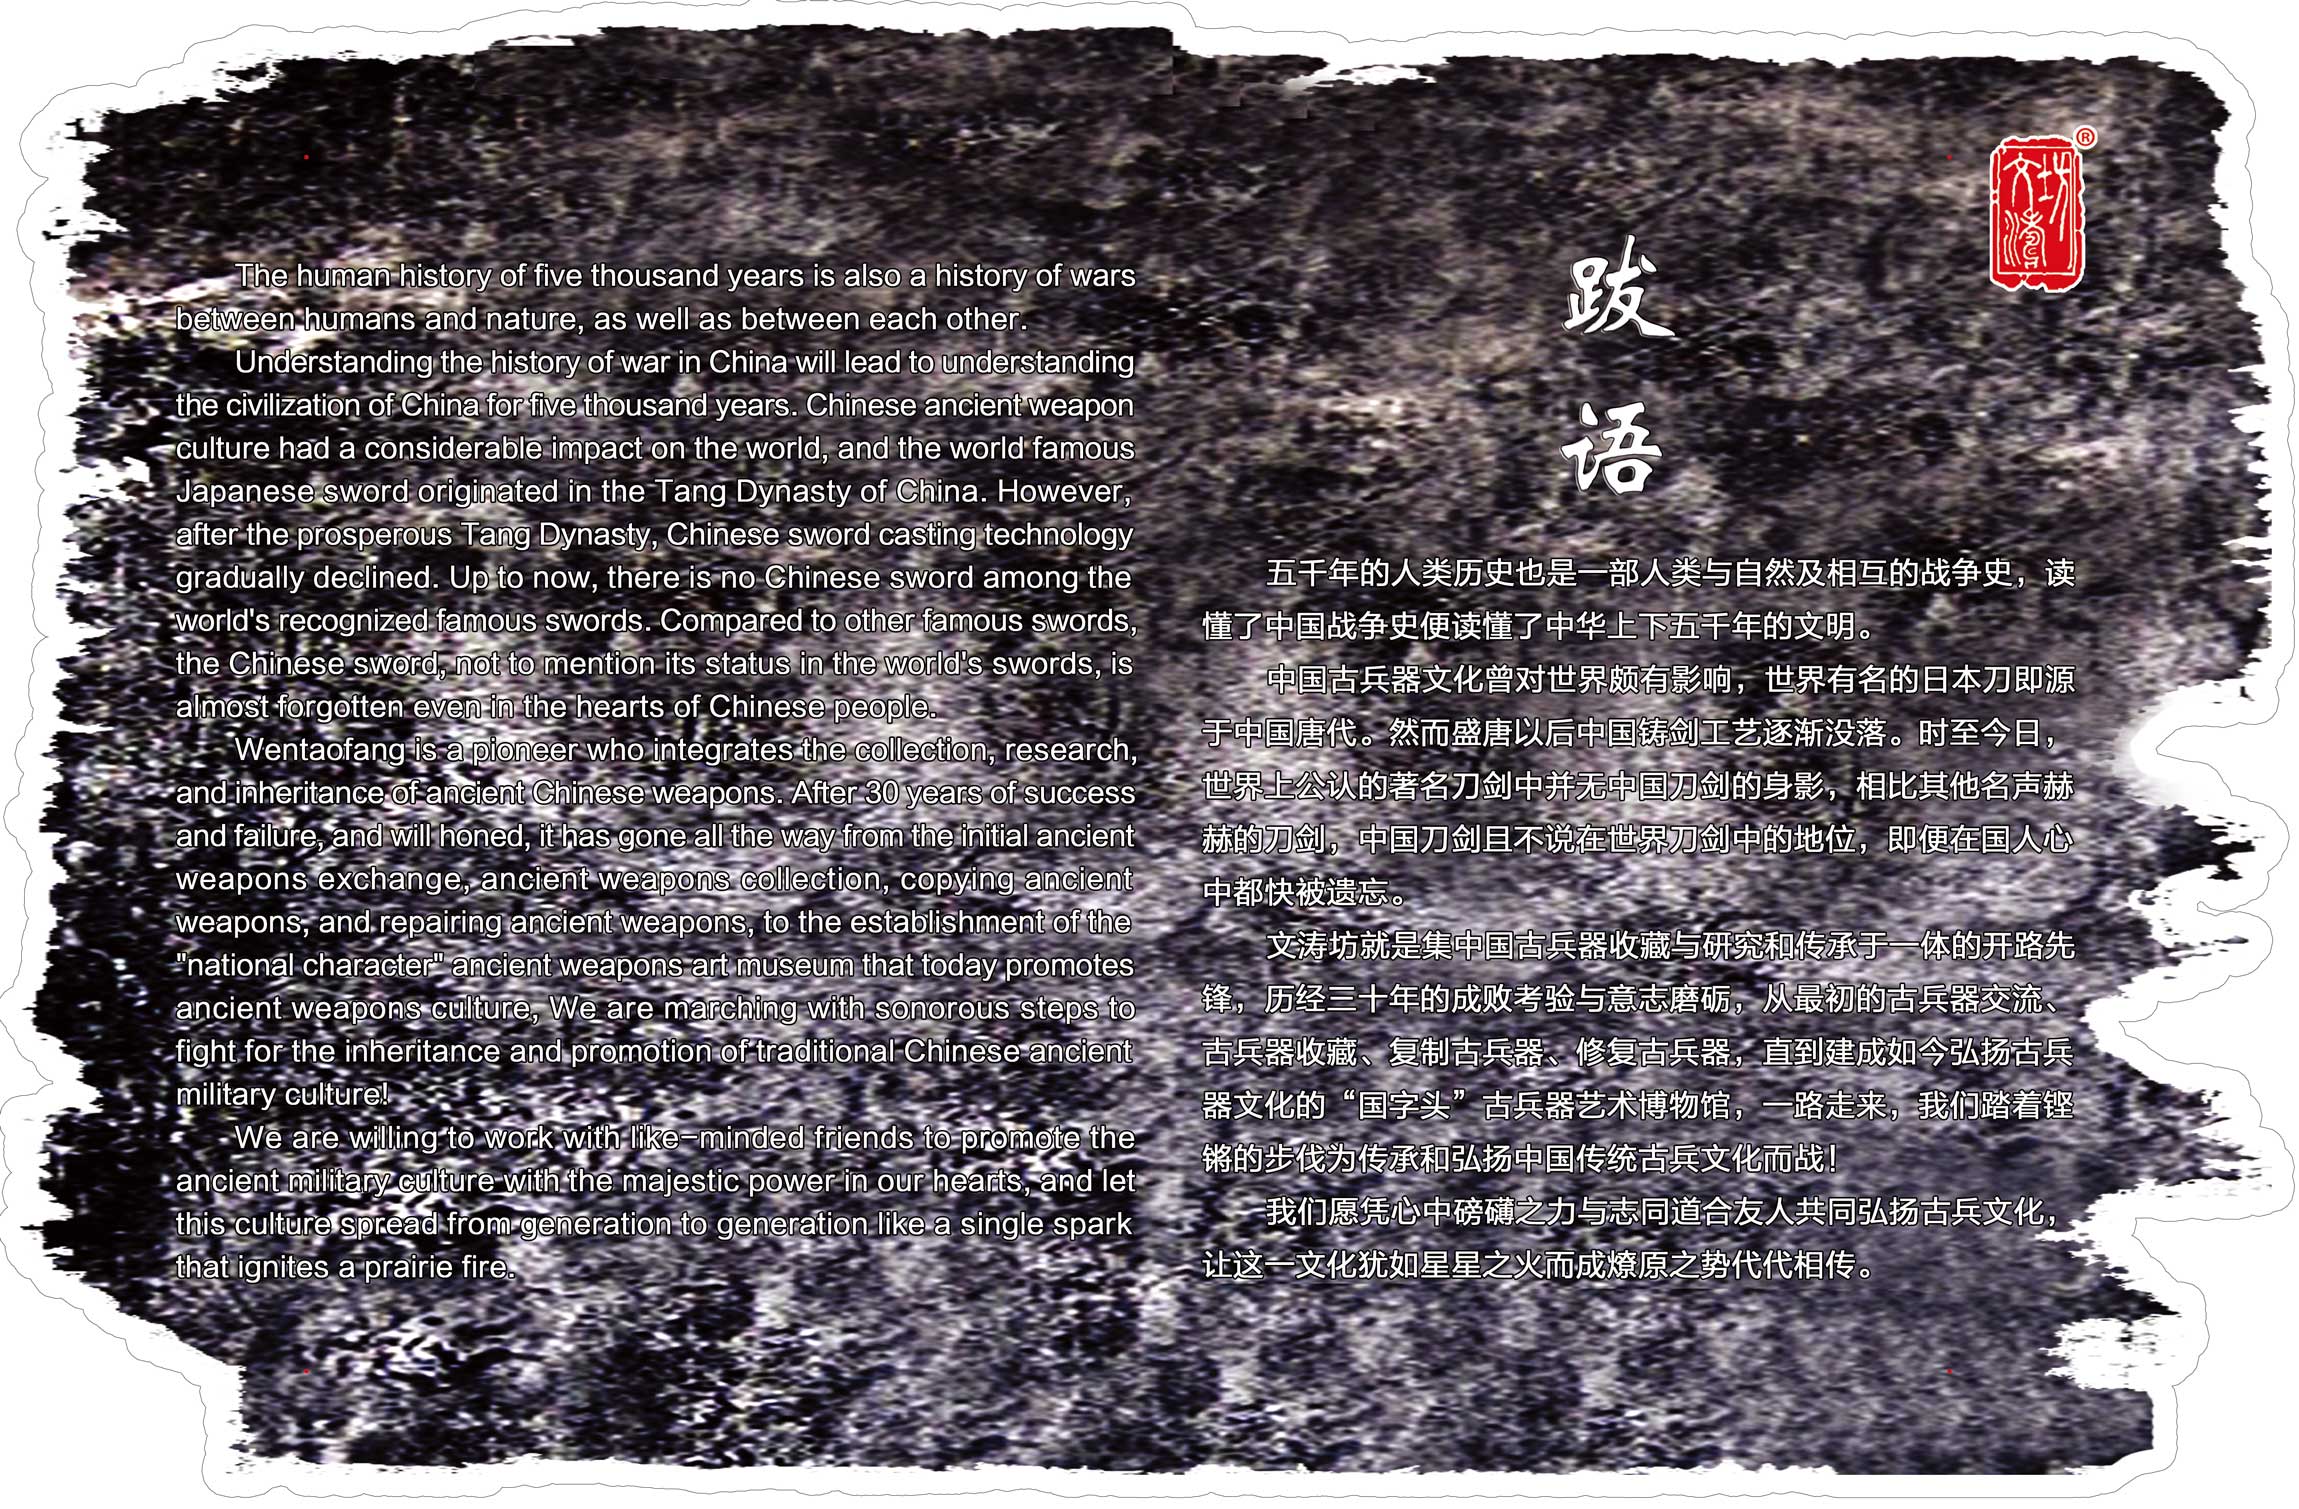 The human history of five thousand years is also a history of wars
between humans and nature, as well as between each other.
Understanding the history of war in China will lead to understanding
the civilization of China for five thousand years. Chinese ancient weapon
culture had a considerable impact on the world, and the world famous
Japanese sword originated in the Tang Dynasty of China. However,
after the prosperous Tang Dynasty, Chinese sword casting technology
gradually declined. Up to now, there is no Chinese sword among the
world's recognized famous swords. Compared to other famous swords,
the Chinese sword, not to mention its status in the world's swords, is
almost forgotten even in the hearts of Chinese people.
Wentaofang is a pioneer who integrates the collection, research,
and inheritance of ancient Chinese weapons. After 30 years of success
and failure, and will honed, it has gone all the way from the initial ancient
weapons exchange, ancient weapons collection, copying ancient
weapons, and repairing ancient weapons, to the establishment of the
"national character" ancient weapons art museum that today promotes
ancient weapons culture, We are marching with sonorous steps to
fight for the inheritance and promotion of traditional Chinese ancient
military culture!
We are willing to work with like-minded friends to promote the
ancient military culture with the majestic power in our hearts, and let
this culture spread from generation to generation like a single spark
that ignites a prairie fire.
文涛坊
®
跋
语
五千年的人类历史也是一部人类与自然及相互的战争史，读
懂了中国战争史便读懂了中华上下五千年的文明。
中国古兵器文化曾对世界颇有影响，世界有名的日本刀即源
于中国唐代。然而盛唐以后中国铸剑工艺逐渐没落。时至今日，
世界上公认的著名刀剑中并无中国刀剑的身影，相比其他名声赫
赫的刀剑，中国刀剑且不说在世界刀剑中的地位，即便在国人心
中都快被遗忘。
文涛坊就是集中国古兵器收藏与研究和传承于一体的开路先
锋，历经三十年的成败考验与意志磨砺，从最初的古兵器交流、
古兵器收藏、复制古兵器、修复古兵器，直到建成如今弘扬古兵
器文化的“国字头”古兵器艺术博物馆，一路走来，我们踏着铿
锵的步伐为传承和弘扬中国传统古兵文化而战！
我们愿凭心中磅礴之力与志同道合友人共同弘扬古兵文化，
让这一文化犹如星星之火而成燎原之势代代相传。